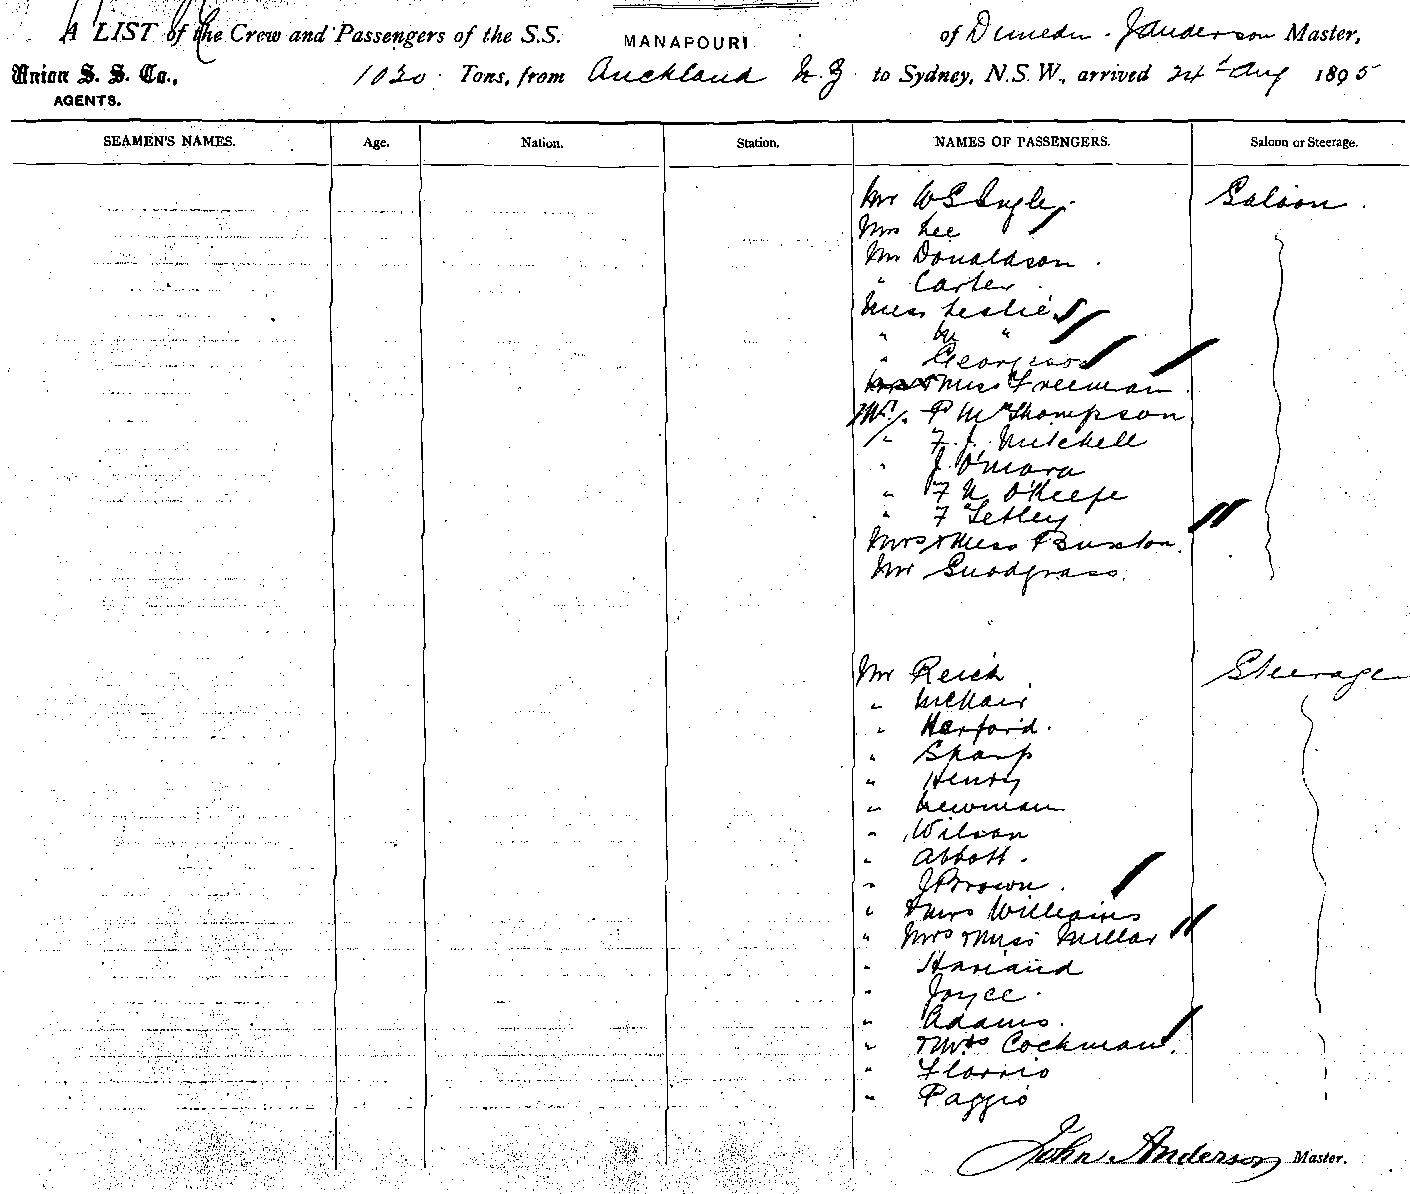 A LIST of the Crew and Passengers of the S.S. MANAPOURI of Dunedin. J Anderson Master,
Union S. S. Co., AGENTS. 1020 Tons, from Auckland N.Z to Sydney, N.S.W., arrived 24th Aug 1895
SEAMEN'S NAMES. Age. Nation. Station. NAMES OF PASSENGERS. Saloon or Steerage.
Mr W G Ingley. Saloon.
Mrs Lee
Mr Donaldson.
" Carter.
Miss Leslie
" M "
"
& Miss Freeman.
Mr. P McThompson
" F. J. Mitchell
" J. O'Mara
" F N O'Keefe
" F Tetley
Mrs & Miss Buxton.
Mr Snodgrass.
Mr Reich Steerage
" McNair
" Herford.
" Sharp
" Henry
" Newman
" Wilson
" Abbott.
" J Brown.
" & Mrs Williams
" Mrs & Miss Millar
" Harland
" Joyce.
" Adams.
" & Mrs Cockman.
" Florrio
" Paggio
John Anderson Master.